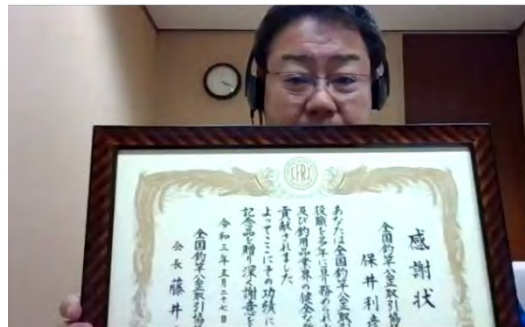 感謝状
全国釣竿公正取引協
保井利
あなたは全国釣竿公正取引協
役職を多年に亘り務められ
及び釣用品業界の健全な
貢献されました
よってここにその功績に
記念品を贈り深く謝意を
令和三年五月二十七日
全国釣竿公正取引協
会長 藤井